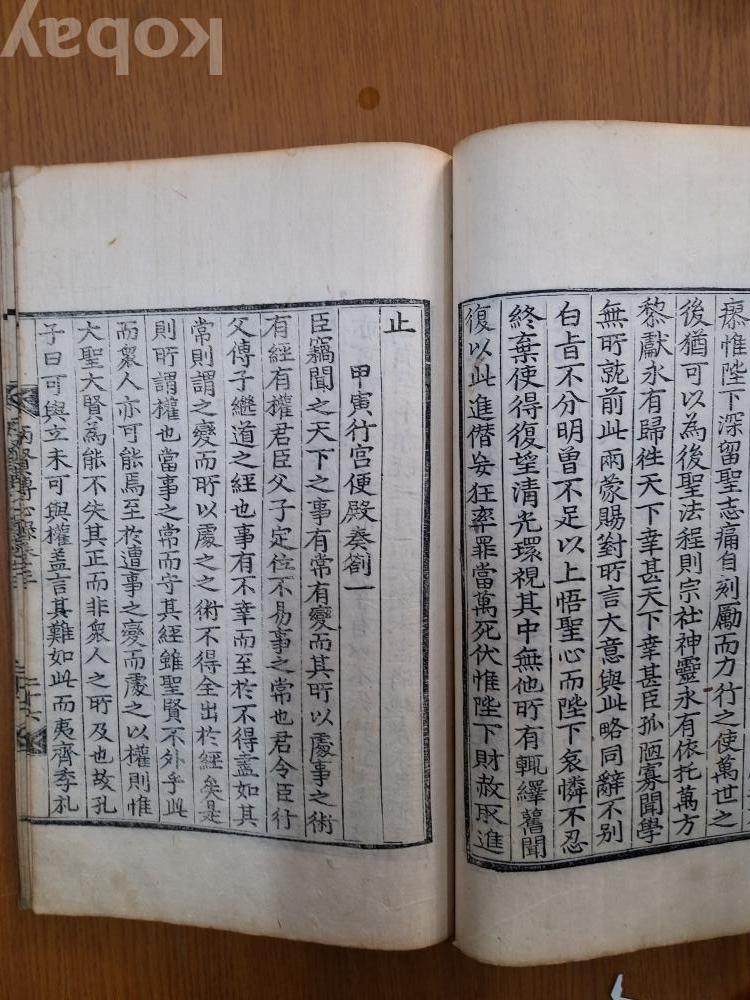 瘝惟陛下深留聖志痛自刻厲而力行之使萬世之
後猶可以為後聖法程則宗社神靈永有依托萬方
黎獻永有歸徃天下幸甚天下幸甚臣孤陋寡聞學
無所就前此兩蒙賜對所言大意與此略同辭不別
白旨不分明曾不足以上悟聖心而陛下哀憐不忍
終棄使得復望清光環視其中無他所有輒繹舊聞
復以此進僭妄狂率罪當萬死伏惟陛下財赦取進
止
甲寅行宮便殿奏劄一
臣竊聞之天下之事有常有變而其所以處事之術
有經有權君臣父子定位不易事之常也君令臣行
父傳子繼道之經也事有不幸而至於不得盡如其
常則謂之變而所以處之之術不得全出於經矣是
則所謂權也當事之常而守其經雖聖賢不外乎此
而衆人亦可能焉至於遭事之變而處之以權則惟
大聖大賢為能不失其正而非衆人之所及也故孔
子曰可與立未可與權盖言其難如此而夷齊季札
兩賢傳心錄卷之三
二十六
kobay